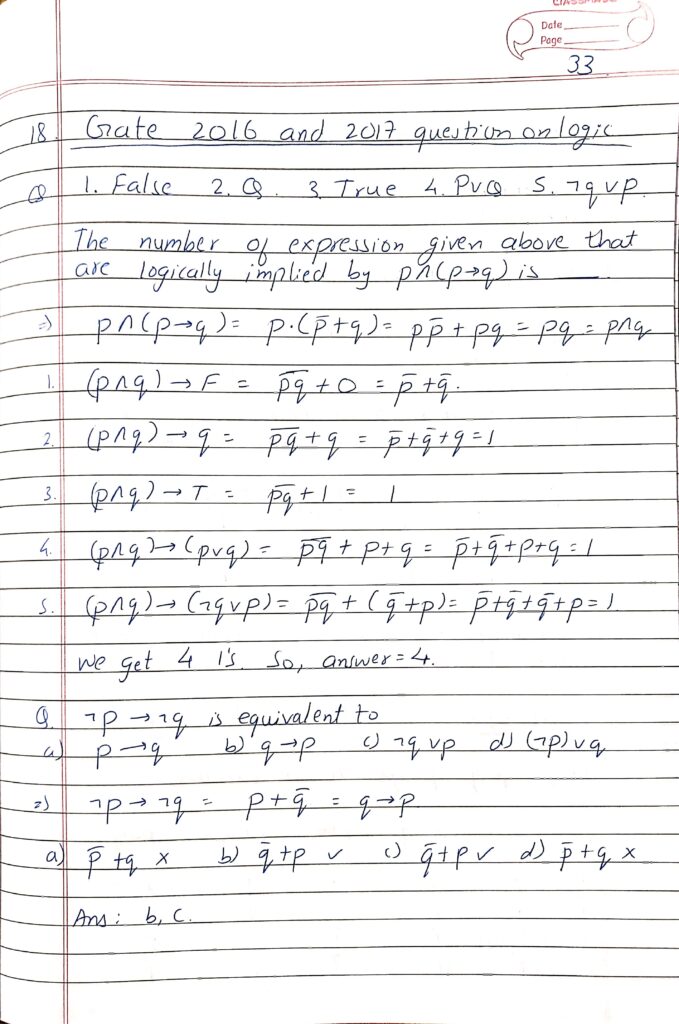 CLASSMATE
Date
Page
33
18. Gate 2016 and 2017 question on logic
Q 1. False 2. Q. 3. True 4. PVQ 5. ¬q ∨ p.
The number of expression given above that
are logically implied by p∧(p→q) is ____.
⇒) p∧(p→q) = p·(p̄+q) = pp̄ + pq = pq = p∧q
1. (p∧q) → F = p̅q̅ + 0 = p̄ + q̄.
2. (p∧q) → q = p̅q̅ + q = p̄ + q̄ + q = 1
3. (p∧q) → T = p̅q̅ + 1 = 1
4. (p∧q) → (p∨q) = p̅q̅ + p + q = p̄ + q̄ + p + q = 1
5. (p∧q) → (¬q∨p) = p̅q̅ + (q̄ + p) = p̄ + q̄ + q̄ + p = 1
we get 4 1's. So, answer = 4.
Q. ¬p → ¬q is equivalent to
a) p → q b) q → p c) ¬q ∨ p d) (¬p) ∨ q
⇒) ¬p → ¬q = p + q̄ = q → p
a) p̄ + q × b) q̄ + p ✓ c) q̄ + p ✓ d) p̄ + q ×
Ans: b, c.